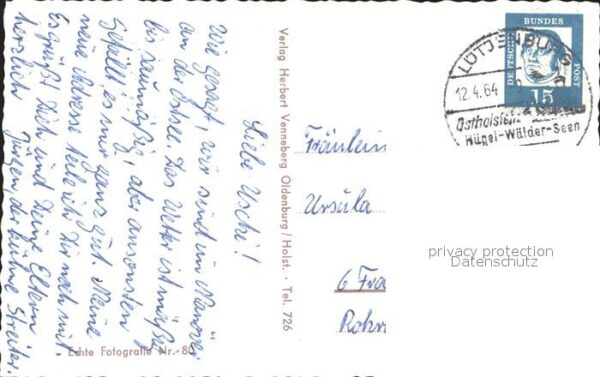 Liebe Uschi!
Wie gesagt, wir sind im Manöver
an der Ostsee. Das Wetter ist mäßig
bis saumäßig, aber ansonsten
gefällt es mir ganz gut. Meine
neue Adresse teile ich Dir noch mit
Es grüßt Dich und Deine Eltern
herzlich Jürgen der kühne Streiter.
Echte Fotografie Nr. 80
Verlag Herbert Venneberg Oldenburg/Holst. - Tel. 726
LÜTJENBURG
12.4.64
Ostholstein
Hügel-Wälder-Seen
DEUTSCHE
BUNDES
POST
15
Fräulein
Ursula
6 Fra
Rohr
privacy protection
Datenschutz